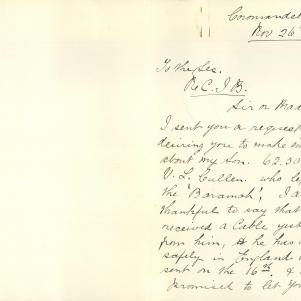 Coromandel
Nov 26
To the Sec.
R C. I B.
Sir or Mad
I sent you a request
desiring you to make in
about my Son. 62.30
V. L. Cullen. who le
the "Baramah", I a
thankful to say that
received a Cable yest
from him, he has a
safely in England
sent on the 16th. &
promised to let you